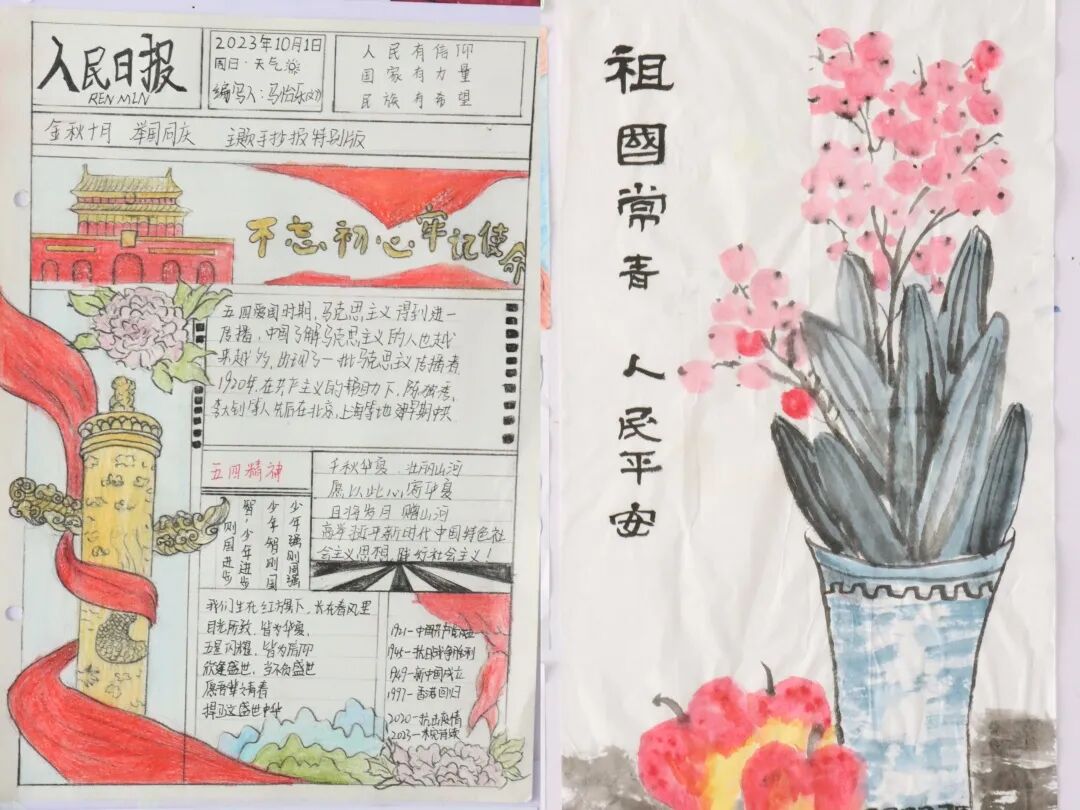 人民日报
REN MIN
2023年10月1日
周日·天气
编写人:马怡乐
人民有信仰
国家有力量
民族有希望
金秋十月 举国同庆 主题手抄报特别版
不忘初心牢记使命
五四爱国时期,马克思主义得到进一
传播,中国了解马克思主义的人也越
来越多,出现了一批马克思主义传播者
1920年,在共产主义的帮助力下,陈独秀,
李大钊等人先后在北京,上海等地
五四精神
少年强则国强
少年智则国
智,少年进步
则国进步
千秋华夏,壮丽山河
愿以此心,寄华夏
且将岁月 赠山河
高举近平新时代中国特色社
会主义思想
社会主义!
我们生在红旗下,长在春风里
目光所致,皆为华夏,
五星闪耀,皆为信仰
欣逢盛世,当不负盛世
愿吾辈之青春
捍卫这盛世中华
1921-中国共产党成立
1945-抗日战争胜利
1949-新中国成立
1997-香港回归
2020-抗击疫情
2023-
祖國常青 人民平安